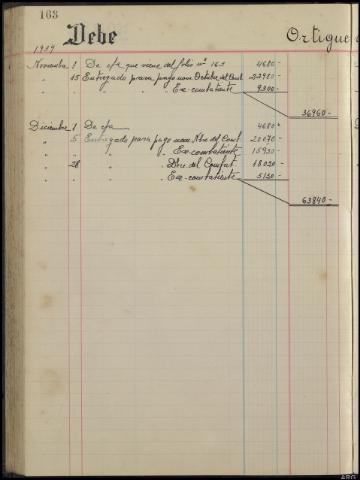 163
Debe Ortigue
1939
Noviembre 1 De cta que viene del folio nº 163 4680 -
" 15 Entregado para pago nom Octubre del Cont 22980 -
" " " " Ex-combatiente 9300 -
36960 -
Diciembre 1 De cta 4680 -
" 5 Entregado para pago nom Nbre del Cont 20070 -
" " " " Ex-combatiente 15930 -
" 28 " " Dbre del Combat 18030 -
" " " " Ex-combatiente 5130 -
63840 -
ARG